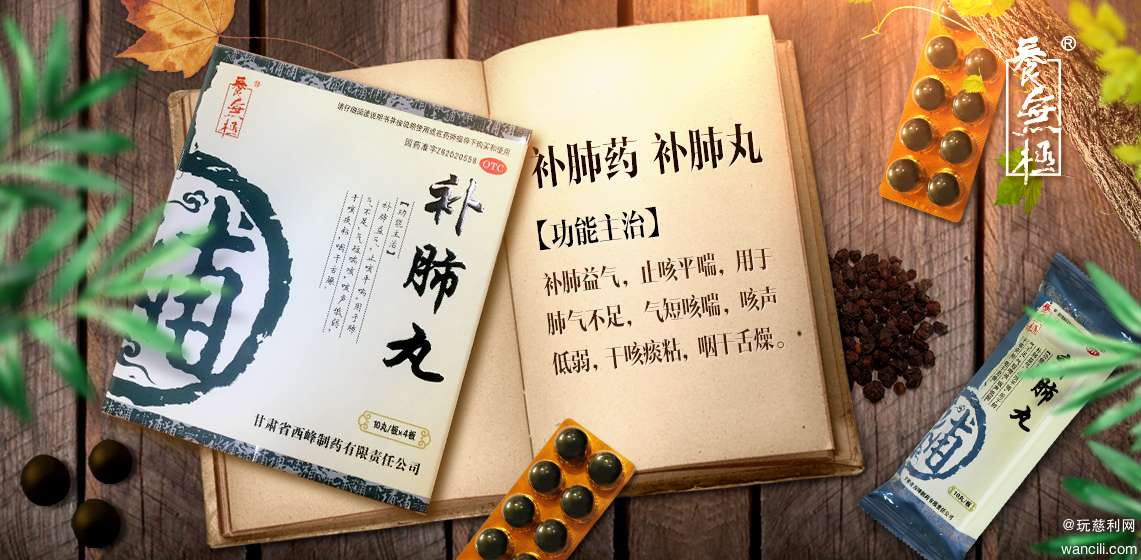 養無極
請仔细阅读说明书并按说明使用或在药师指导下购买和使用
国药准字Z62020558
OTC
补肺丸
【功能主治】
补肺益气，止咳平喘，用于肺
气不足，气短喘咳，咳声低弱，
干咳痰粘，咽干舌燥。
10丸/板×4板
甘肃省西峰制药有限责任公司
补肺药 补肺丸
【功能主治】
补肺益气，止咳平喘，用于
肺气不足，气短咳喘，咳声
低弱，干咳痰粘，咽干舌燥。
養無極®
養無極
肺丸
10丸/板
@玩慈利网
wancili.com